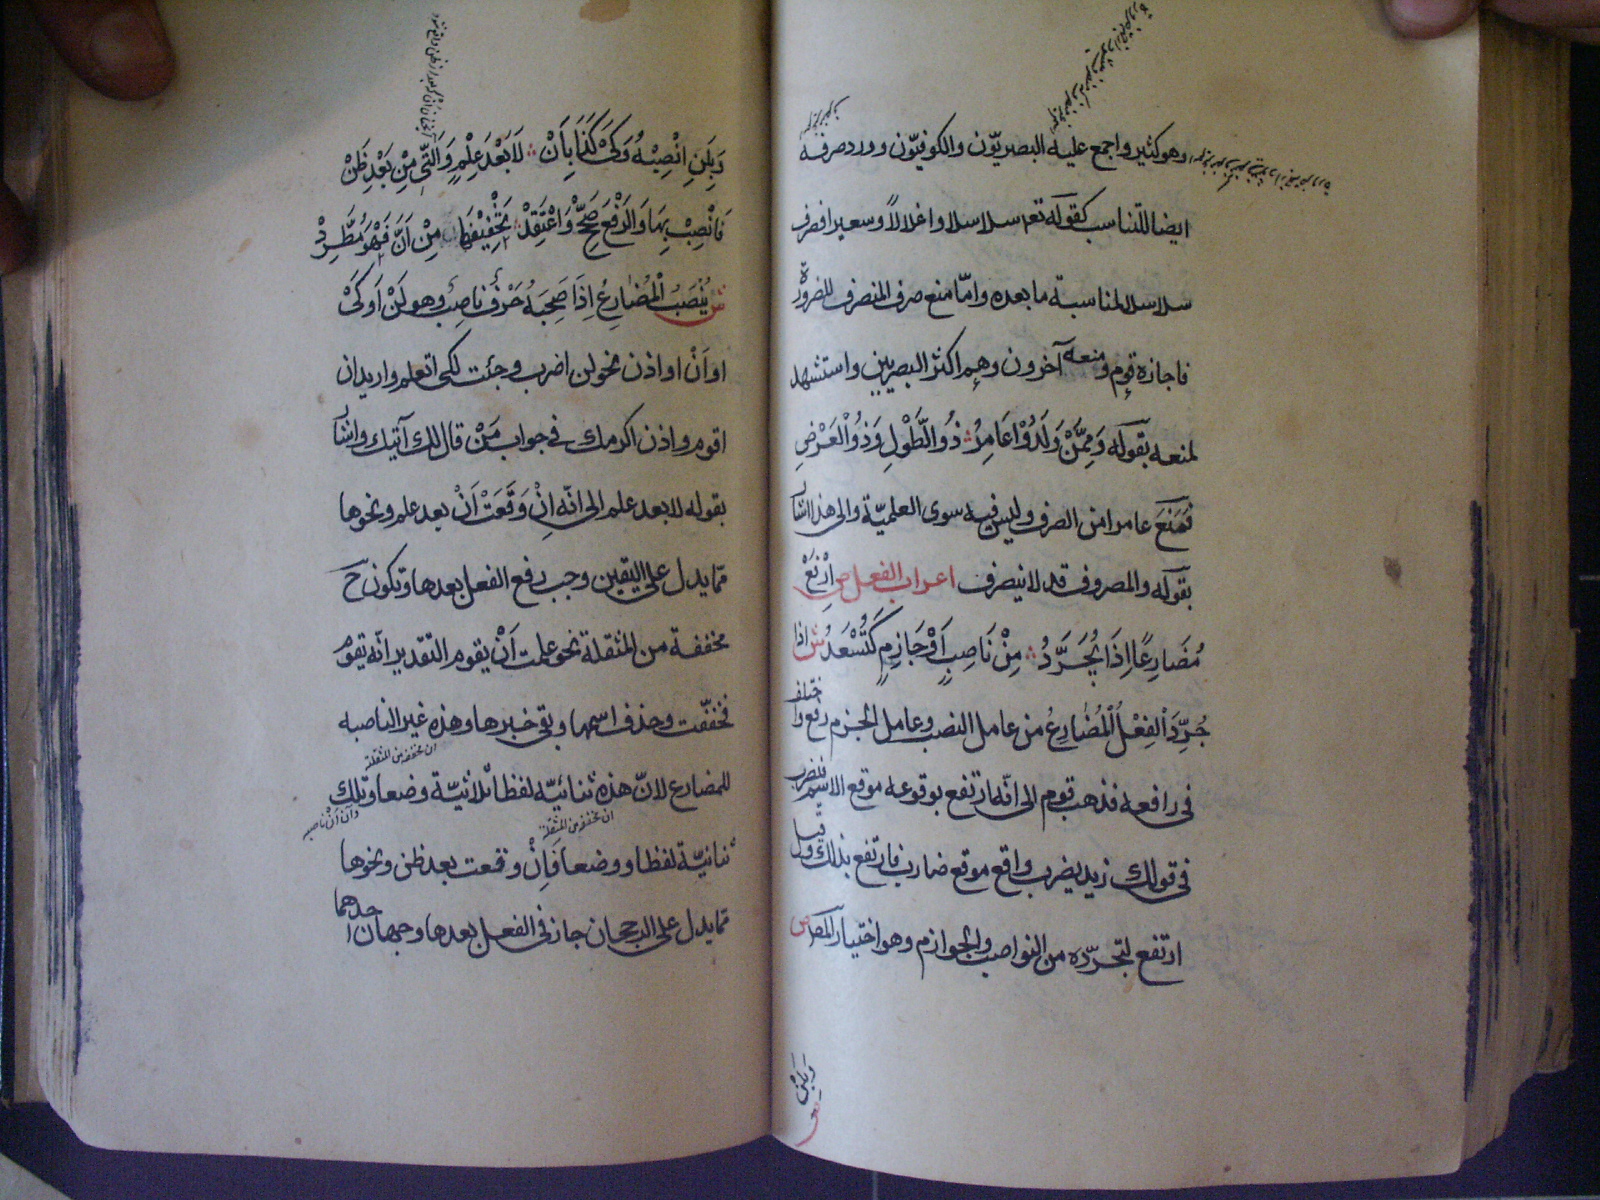 وهو كثير واجمع عليه البصريّون والكوفيّون وورد صرفه
ايضا للتناسب كقوله تعم سلاسلا واغلالاً وسعيرا فصرف
سلاسلا لمناسبة ما بعده وامّا منع صرف المنصرف للضرورة
فاجازه قوم ومنعه آخرون وهم اكثر البصريين واستشهد
لمنعه بقوله وَمِمَّنْ وَلَدُوْا عَامِرُ ذُو الطَّوْلِ وَذُو الْعَرْضِ
فمَنَعَ عامرا من الصرف وليس فيه سوى العلميّة والى هذا اشار
بقوله والمصروف قد لا ينصرف اعراب الفعل ص اِرْفَعْ
مُضَارِعًا اِذَا يُجَرَّدُ مِنْ نَاصِبٍ اَوْ جَازِمٍ كَتُسْعَدُ ش اذا
جُرِّدَ اْلفِعْلُ الْمُضَارِعُ من عامل النصب وعامل الجزم رفع واختلف
فى رافعه فذهب قوم الى انّه ارتفع بوقوعه موقع الاسم فيضرب
فى قولك زيد يضرب واقع موقع ضارب فارتفع بذلك وقيل
ارتفع لتجرّده من النواصب والجوازم وهو اختيار المص ص
وَبِلَنْ
وَبِلَنِ انْصِبْهُ وَكَىْ كَذَا بِاَنْ لاَ بَعْدَ عِلْمٍ وَالَّتِى مِنْ بَعْدِ ظَنْ
فَانْصِبْ بِهَا وَالرَّفْعَ صَحِّحْ وَاعْتَقِدْ تَخْفِيْفَهَا مِنْ اَنَّ فَهْوَ مُطَّرِدْ
ش يُنْصَبُ الْمُضَارِعُ اِذَا صَحِبَهُ حَرْفٌ نَاصِبٌ وهو لَنْ اَو كَىْ
او اَنْ او اذن نحو لن اضرب وجئت لكى اتعلم واريد ان
اقوم واذن اكرمك فى جواب مَنْ قال لك آتيك واشار
بقوله لا بعد علم الى انّه اِنْ وَقَعَتْ اَنْ بعد علم ونحوها
ممّا يدل على اليقين وجب رفع الفعل بعدها وتكون ح
مخففة من المثقلة نحو علمت اَنْ يقوم التقدير انّه يقوم
فخففّت وحذف اسمها وبقى خبرها وهذه غير الناصبه
ان مخففه من المثقلة
للمضارع لانّ هذه ثنائيّة لفظا ثلاثيّة وضعا وتلك
وان اَنْ ناصبه
ان مخففه من المثقلة
ثنائيّة لفظا ووضعا فَاِنْ وقعت بعد ظن ونحوها
ممّا يدل على الرجحان جاز فى الفعل بعدها وجهان احدهما